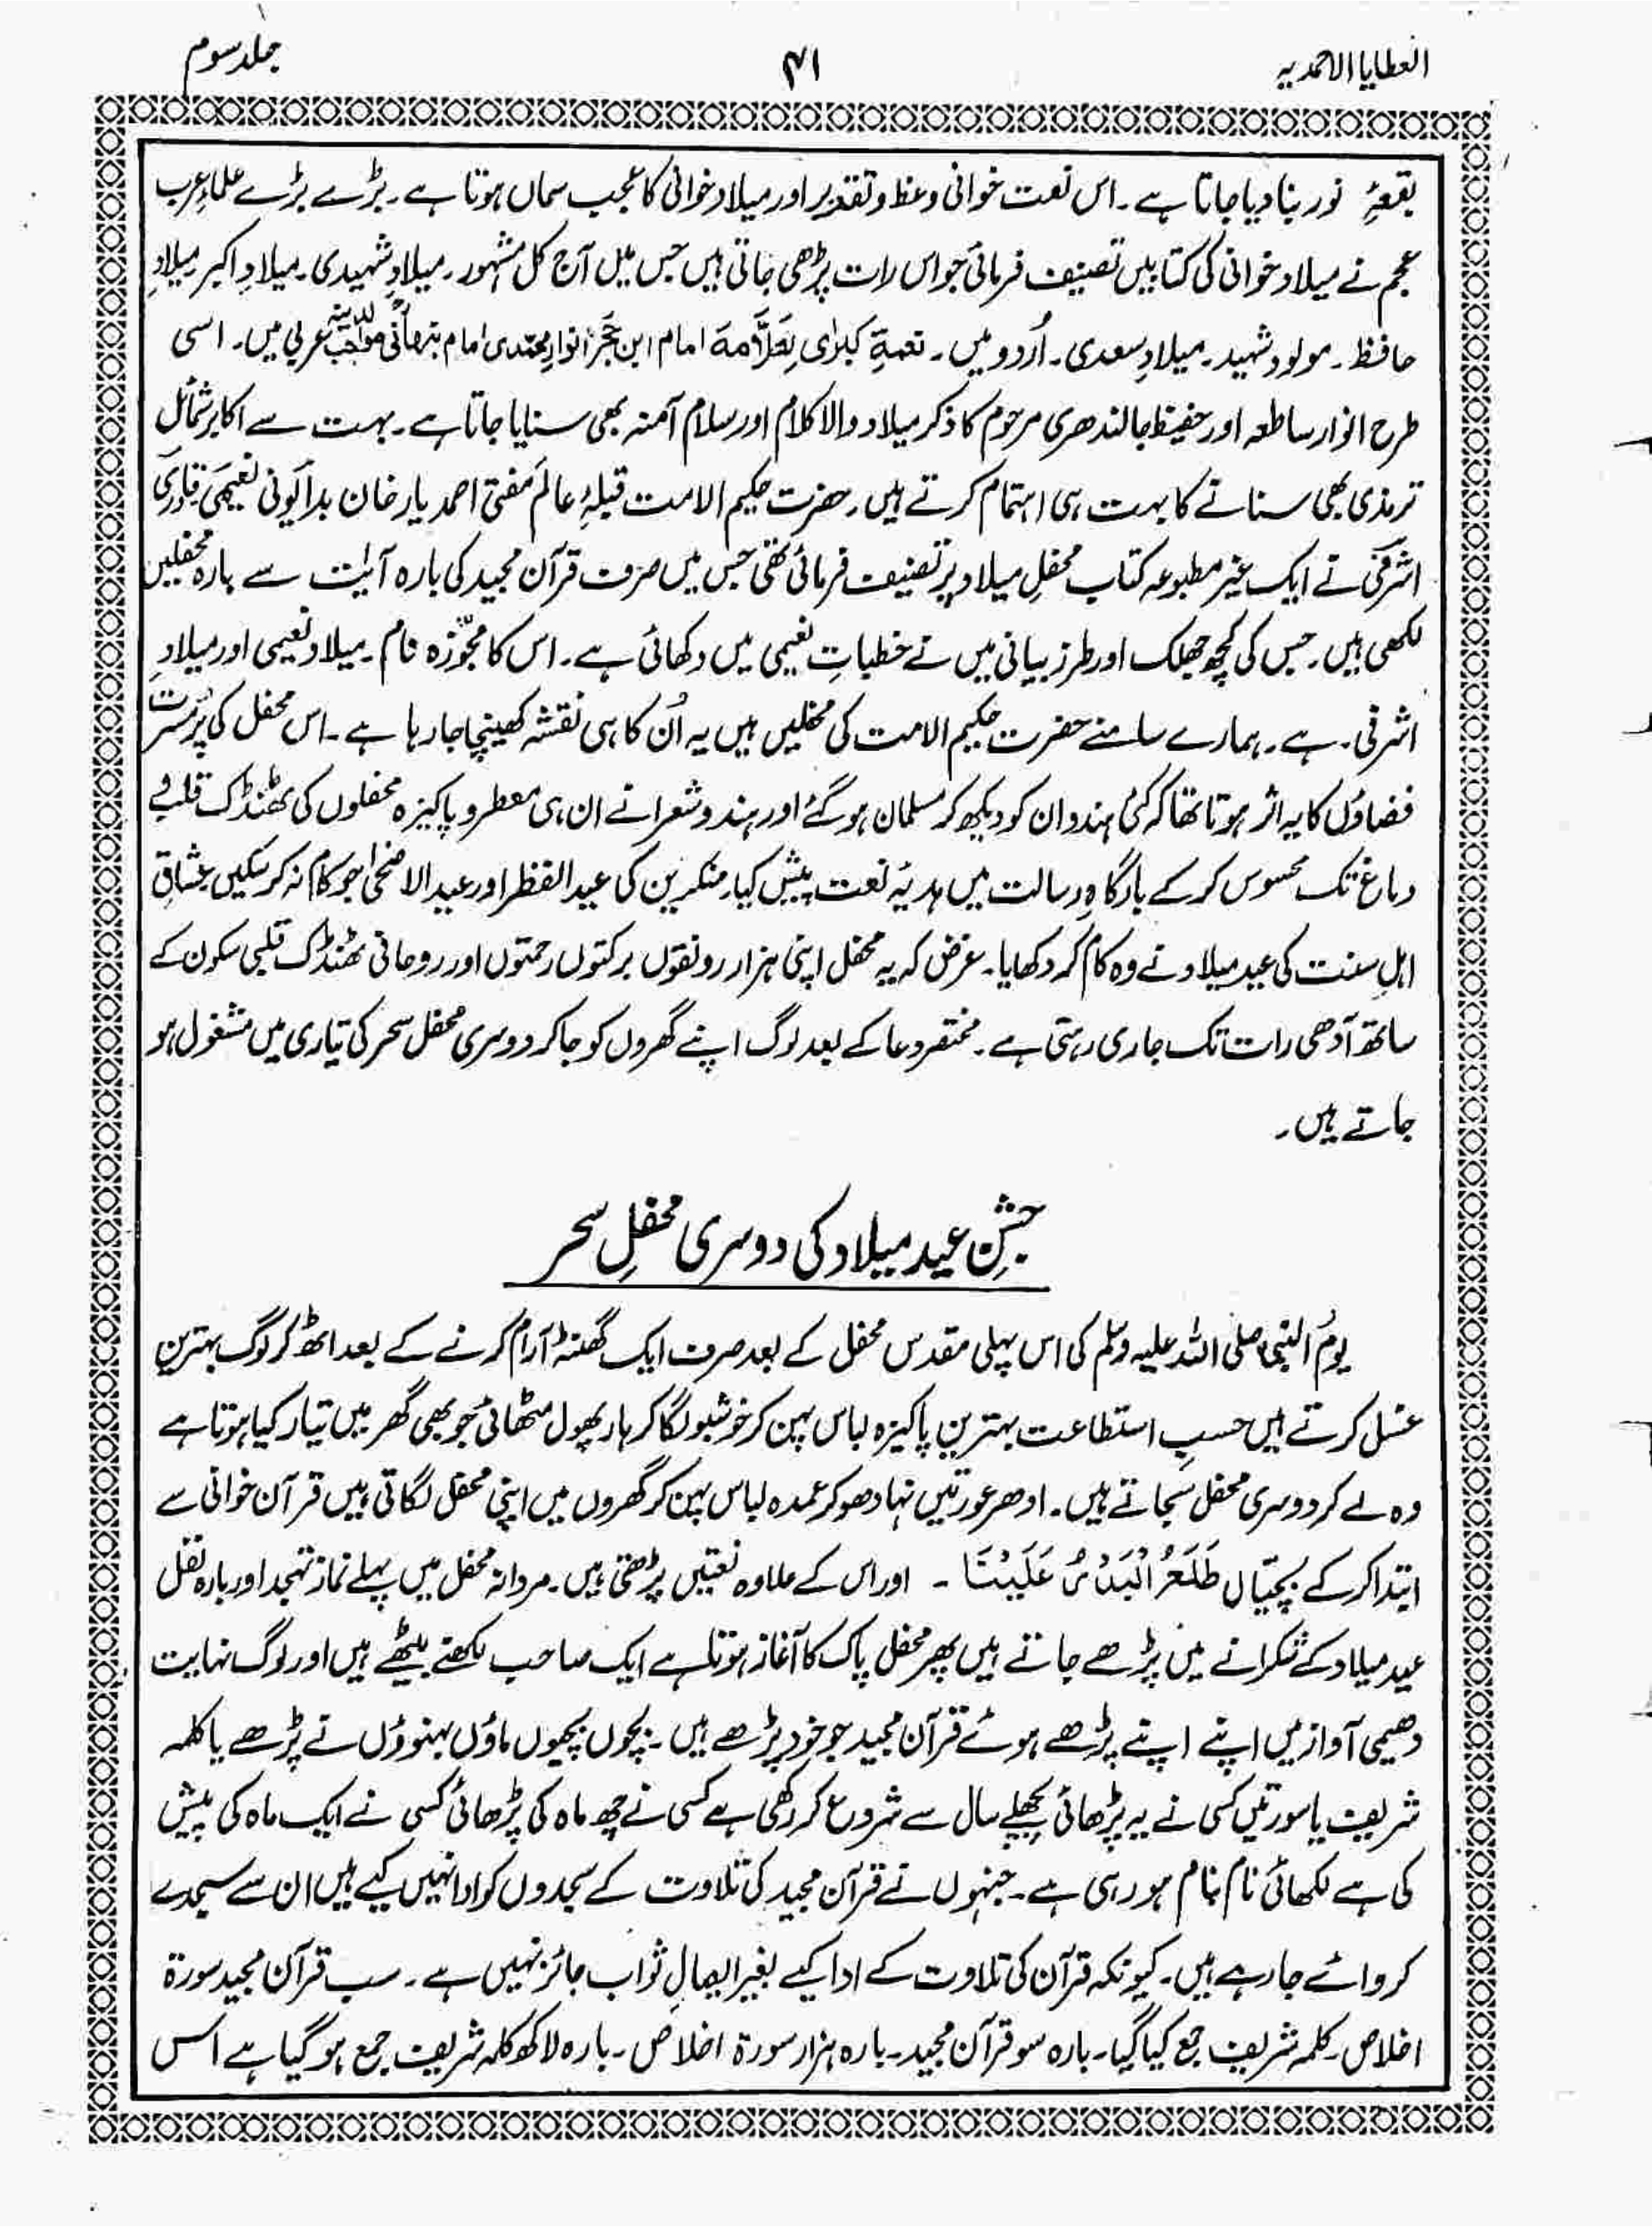 العطایا الاحمدیہ
۴۱
جلد سوم
بقعۂِ نور بنا دیا جاتا ہے۔ اس نعت خوانی وعظ و تقدیر اور میلاد خوانی کا عجب سماں ہوتا ہے۔ بڑے بڑے علماءِ عرب
عجم نے میلاد خوانی کی کتابیں تصنیف فرمائی جو اس رات پڑھی جاتی ہیں جس میں آج کل مشہور۔ میلادِ شہیدی۔ میلادِ اکبر میلادِ
حافظ۔ مولود شہید۔ میلادِ سعدی۔ اُردو میں۔ نعمۃِ کبرٰی لِعَلَّامۃ امام ابن حَجَر انوارِ محمدی امام نبھانی مواہب لدنیہ عربی میں۔ اسی
طرح انوار ساطعہ اور حفیظ جالندھری مرحوم کا ذکر میلاد والا کلام اور سلام آمنہ بھی سنایا جاتا ہے۔ بہت سے اکابر شمائل
ترمذی بھی سنانے کا بہت ہی اہتمام کرتے ہیں۔ حضرت حکیم الامت قبلۂِ عالَم مفتی احمد یار خان بدایونی نعیمی قادری
اشرفی نے ایک غیر مطبوعہ کتاب محفلِ میلاد پر تصنیف فرمائی تھی جس میں صرف قرآن مجید کی بارہ آیات سے بارہ محفلیں
لکھی ہیں۔ جس کی کچھ جھلک اور طرز بیانی میں نے خطباتِ نعیمی میں دکھائی ہے۔ اس کا مجوّزہ نام۔ میلاد نعیمی اور میلادِ
اشرفی۔ ہے۔ ہمارے سامنے حضرت حکیم الامت کی محفلیں ہیں یہ اُن کا ہی نقشہ کھینچا جا رہا ہے۔ اس محفل کی پُرمسرت
فضاؤں کا یہ اثر ہوتا تھا کہ کئی ہندو ان کو دیکھ کر مسلمان ہو گئے اور ہندو شعرا نے ان ہی معطر و پاکیزہ محفلوں کی ٹھنڈک قلب و
دماغ تک محسوس کر کے بارگاہِ رسالت میں ہدیۂ نعت پیش کیا۔ منکرین کی عید الفطر اور عید الاضحیٰ جو کام نہ کر سکیں عشاقِ
اہلِ سنت کی عید میلاد نے وہ کام کر دکھایا۔ غرض کہ یہ محفل اپنی ہزار رونقوں برکتوں رحمتوں اور روحانی ٹھنڈک قلبی سکون کے
ساتھ آدھی رات تک جاری رہتی ہے۔ مختصر دعا کے بعد لوگ اپنے گھروں کو جا کر دوسری محفل سحر کی تیاری میں مشغول ہو
جاتے ہیں۔
جشنِ عید میلاد کی دوسری محفلِ سحر
یومُ النبی صلی اللہ علیہ وسلم کی اس پہلی مقدس محفل کے بعد صرف ایک گھنٹہ آرام کرنے کے بعد اٹھ کر لوگ بہترین
غسل کرتے ہیں حسبِ استطاعت بہترین پاکیزہ لباس پہن کر خوشبو لگا کر ہار پھول مٹھائی جو بھی گھر میں تیار کیا ہوتا ہے
وہ لے کر دوسری محفل سجاتے ہیں۔ ادھر عورتیں نہا دھو کر عمدہ لباس پہن کر گھروں میں اپنی محفل لگاتی ہیں قرآن خوانی سے
ابتدا کر کے بچیاں طَلَعَ الْبَدْرُ عَلَیْنَا ۔ اور اس کے علاوہ نعتیں پڑھتی ہیں۔ مردانہ محفل میں پہلے نماز تہجد اور بارہ نفل
عید میلاد کے شکرانے میں پڑھے جاتے ہیں پھر محفل پاک کا آغاز ہوتا ہے ایک صاحب لکھنے بیٹھے ہیں اور لوگ نہایت
دھیمی آواز میں اپنے اپنے پڑھے ہوئے قرآن مجید جو خود پڑھے ہیں۔ بچوں بچیوں ماؤں بہنوؤں نے پڑھے یا کلمہ
شریف یا سورتیں کسی نے یہ پڑھائی پچھلے سال سے شروع کر رکھی ہے کسی نے چھ ماہ کی پڑھائی کسی نے ایک ماہ کی پیش
کی ہے لکھائی نام بنام ہو رہی ہے۔ جنہوں نے قرآن مجید کی تلاوت کے سجدوں کو ادا نہیں کیے ہیں ان سے سجدے
کروائے جا رہے ہیں۔ کیونکہ قرآن کی تلاوت کے ادا کیے بغیر ایصالِ ثواب جائز نہیں ہے۔ سب قرآن مجید سورۃ
اخلاص۔ کلمہ شریف جمع کیا گیا۔ بارہ سو قرآن مجید۔ بارہ ہزار سورۃ اخلاص۔ بارہ لاکھ کلمہ شریف جمع ہو گیا ہے اس